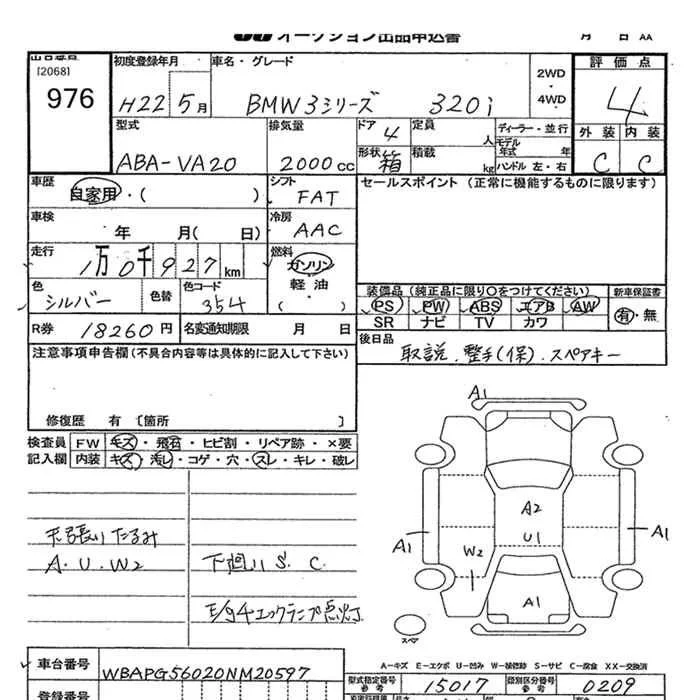 オークション出品申込書 月 日 AA
出品番号
[2068]
976
初度登録年月
H22 5月
車名・グレード
BMW3シリーズ 320i
2WD
・
4WD
評価点
4
外装 内装
C C
型式
ABA-VA20
排気量
2000cc
ドア 4
定員 人
形状 箱
積載 kg
ディーラー・並行
モデル年式 年
ハンドル 左・右
車歴
自家用・( )
シフト
FAT
セールスポイント (正常に機能するものに限ります)
車検
年 月( 日)
冷房
AAC
走行
1万0千927km
燃料
ガソリン
軽油
( )
色
シルバー
色替
色コード
354
R券 18260円
名変通知期限 月 日
装備品 (純正品に限り〇をつけてください)
PS PW ABS エアB AW
SR ナビ TV カワ
新車保証書
有・無
後日品
取説.整手(保).スペアキー
注意事項申告欄(不具合内容等は具体的に記入して下さい)
修復歴 有 〔箇所 〕
検査員記入欄
FW キズ・飛石・ヒビ割・リペア跡・×要
内装 キズ・汚レ・コゲ・穴・スレ・キレ・破レ
天張りたるみ
A.U.W2
下廻り S. C.
E/gチェックランプ点灯
A1
A2
U1
A1
A1
W2
A1
スペア
A-キズ E-エクボ U-凹み W-補修跡 S-サビ C-腐食 XX-交換済
車台番号
WBAPG56020NM20597
型式指定番号
参考
15017
類別区分番号
参考
0209
登録番号